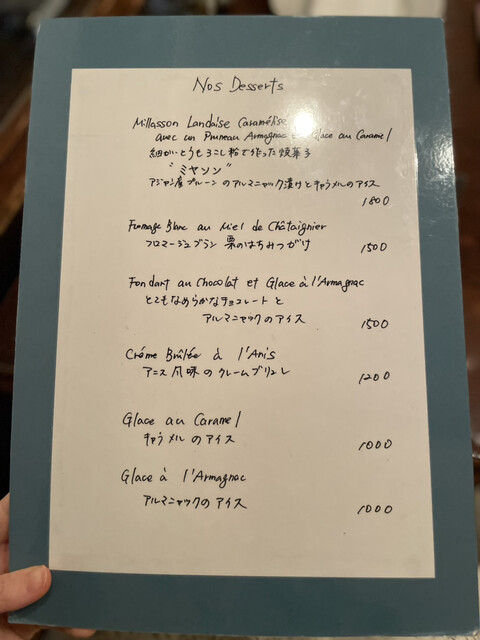 Nos Desserts
Millasson Landaise Caramélisé
avec un Pruneau Armagnac Glace au Caramel
細かいとうもろこし粉で作った焼菓子
"ミヤソン"
アジャン産プルーンのアルマニャック漬けとキャラメルのアイス
1800
Fromage Blanc au Miel de Châtaignier
フロマージュブラン 栗のはちみつがけ
1500
Fondant au Chocolat et Glace à l'Armagnac
とてもなめらかなチョコレートと
アルマニャックのアイス
1500
Créme Brûlée à l'Anis
アニス風味のクレームブリュレ
1200
Glace au Caramel
キャラメルのアイス
1000
Glace à l'Armagnac
アルマニャックのアイス
1000